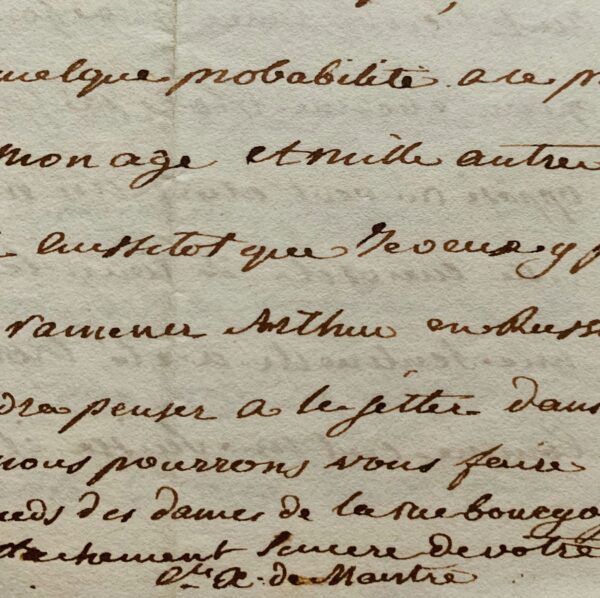 quelque probabilité a ce p
mon age et mille autre
aussitot que Je veux y p
ramener Arthur en Russ
dra penser a le jetter dans
nous pourrons vous faire
ieds des dames de la rue bourgog
tachement sincere de votre
Cte X. de Maistre